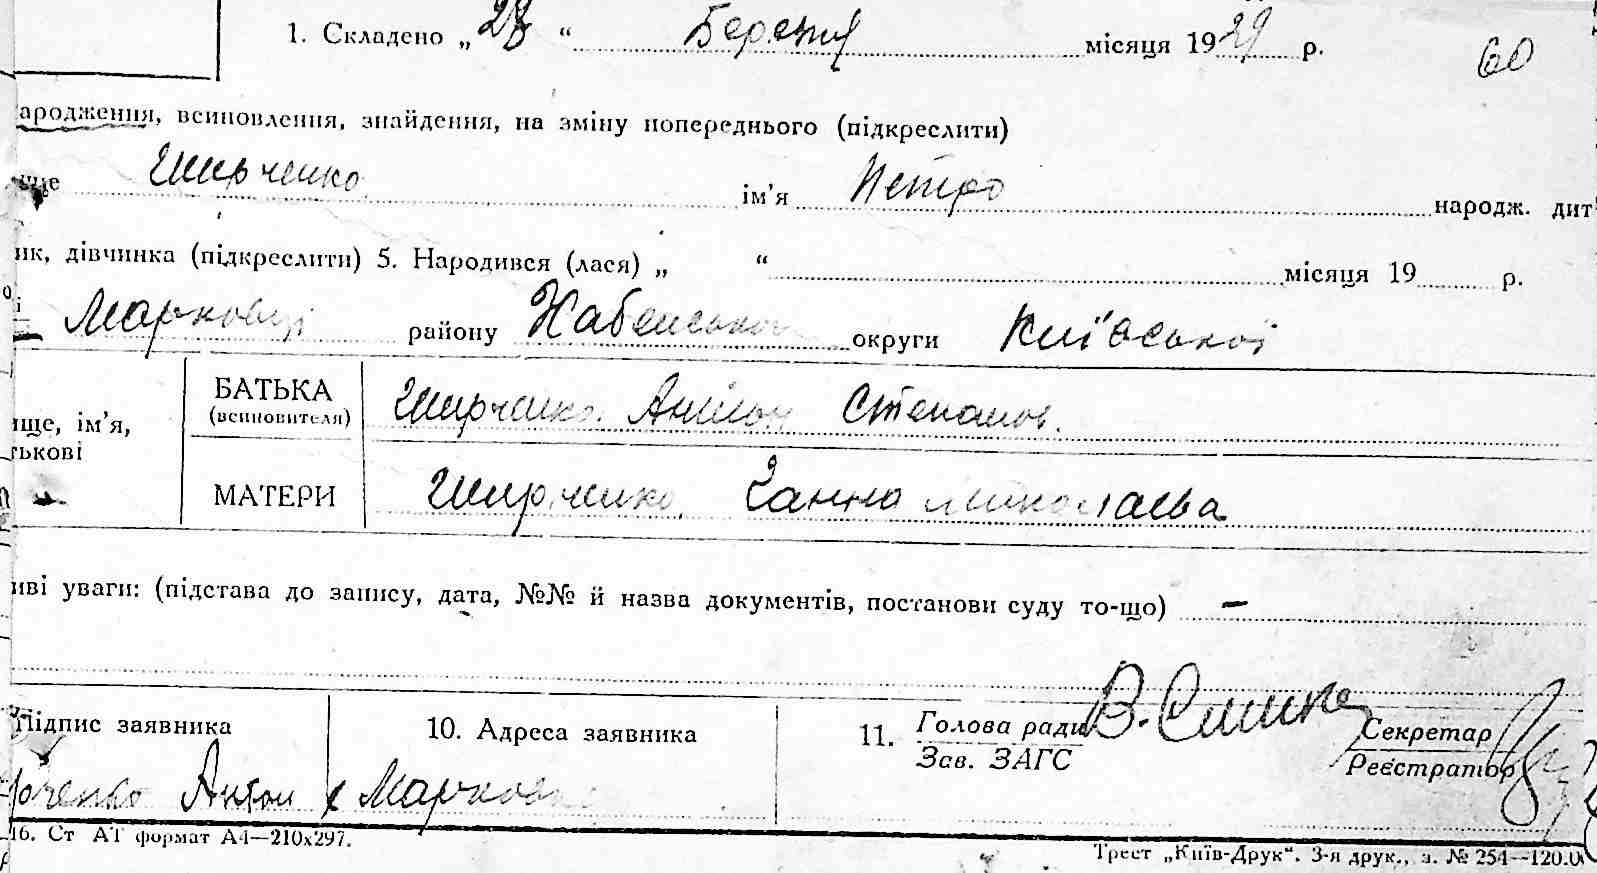 1. Складено „28 “ Березня місяця 1929 р. 60
ародження, всиновлення, знайдення, на зміну попереднього (підкреслити)
ще Ширченко ім’я Петро народж. дит
ик, дівчинка (підкреслити) 5. Народився (лася) „ “ місяця 19 р.
і Марковці району округи Київської
БАТЬКА Ширченко Антон Степанов.
(всиновителя)
ище, ім’я,
ькові
МАТЕРИ Ширченко Ганна Миколаєва
иві уваги: (підстава до запису, дата, №№ й назва документів, постанови суду то-що) –
Підпис заявника 10. Адреса заявника 11. Голова ради Секретар
Зав. ЗАГС Реєстратор
рченко Антон х Марков
16. Ст АТ формат А4—210х297.
Трест „Київ-Друк“. 3-я друк., з. № 254—120.0